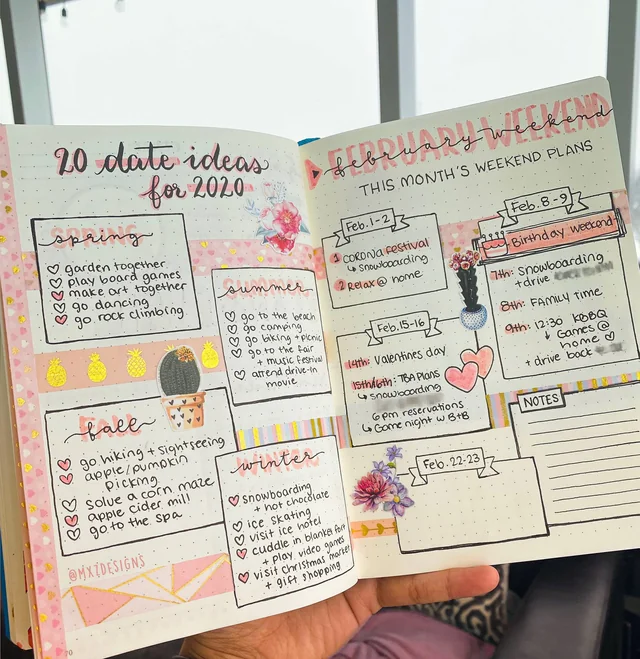 20 date ideas
for 2020
SPRING
spring
garden together
play board games
make art together
go dancing
go rock climbing
SUMMER
summer
go to the beach
go camping
go biking + picnic
go to the fair
+ music festival
attend drive-in
movie
FALL
fall
go hiking + sightseeing
apple/pumpkin
picking
solve a corn maze
apple cider mill
go to the spa
WINTER
winter
snowboarding
+ hot chocolate
ice skating
visit ice hotel
cuddle in blanket fort
+ play video games
visit christmas market
+ gift shopping
@MXTDESIGNS
70
FEBRUARY WEEKEND
february weekend
THIS MONTH'S WEEKEND PLANS
Feb. 1-2
1 CORONA festival
↳ snowboarding
2 Relax @ home
Feb. 8-9
Birthday weekend
7th: Snowboarding
+ drive
8th: FAMILY TIME
9th: 12:30 KBBQ
↓ Games @
home ♡
+ drive back
Feb. 15-16
14th: Valentines day
15th/16th: TBA PLANS
↳ snowboarding
6pm reservations
↳ Game night w B+B
NOTES
Feb. 22-23